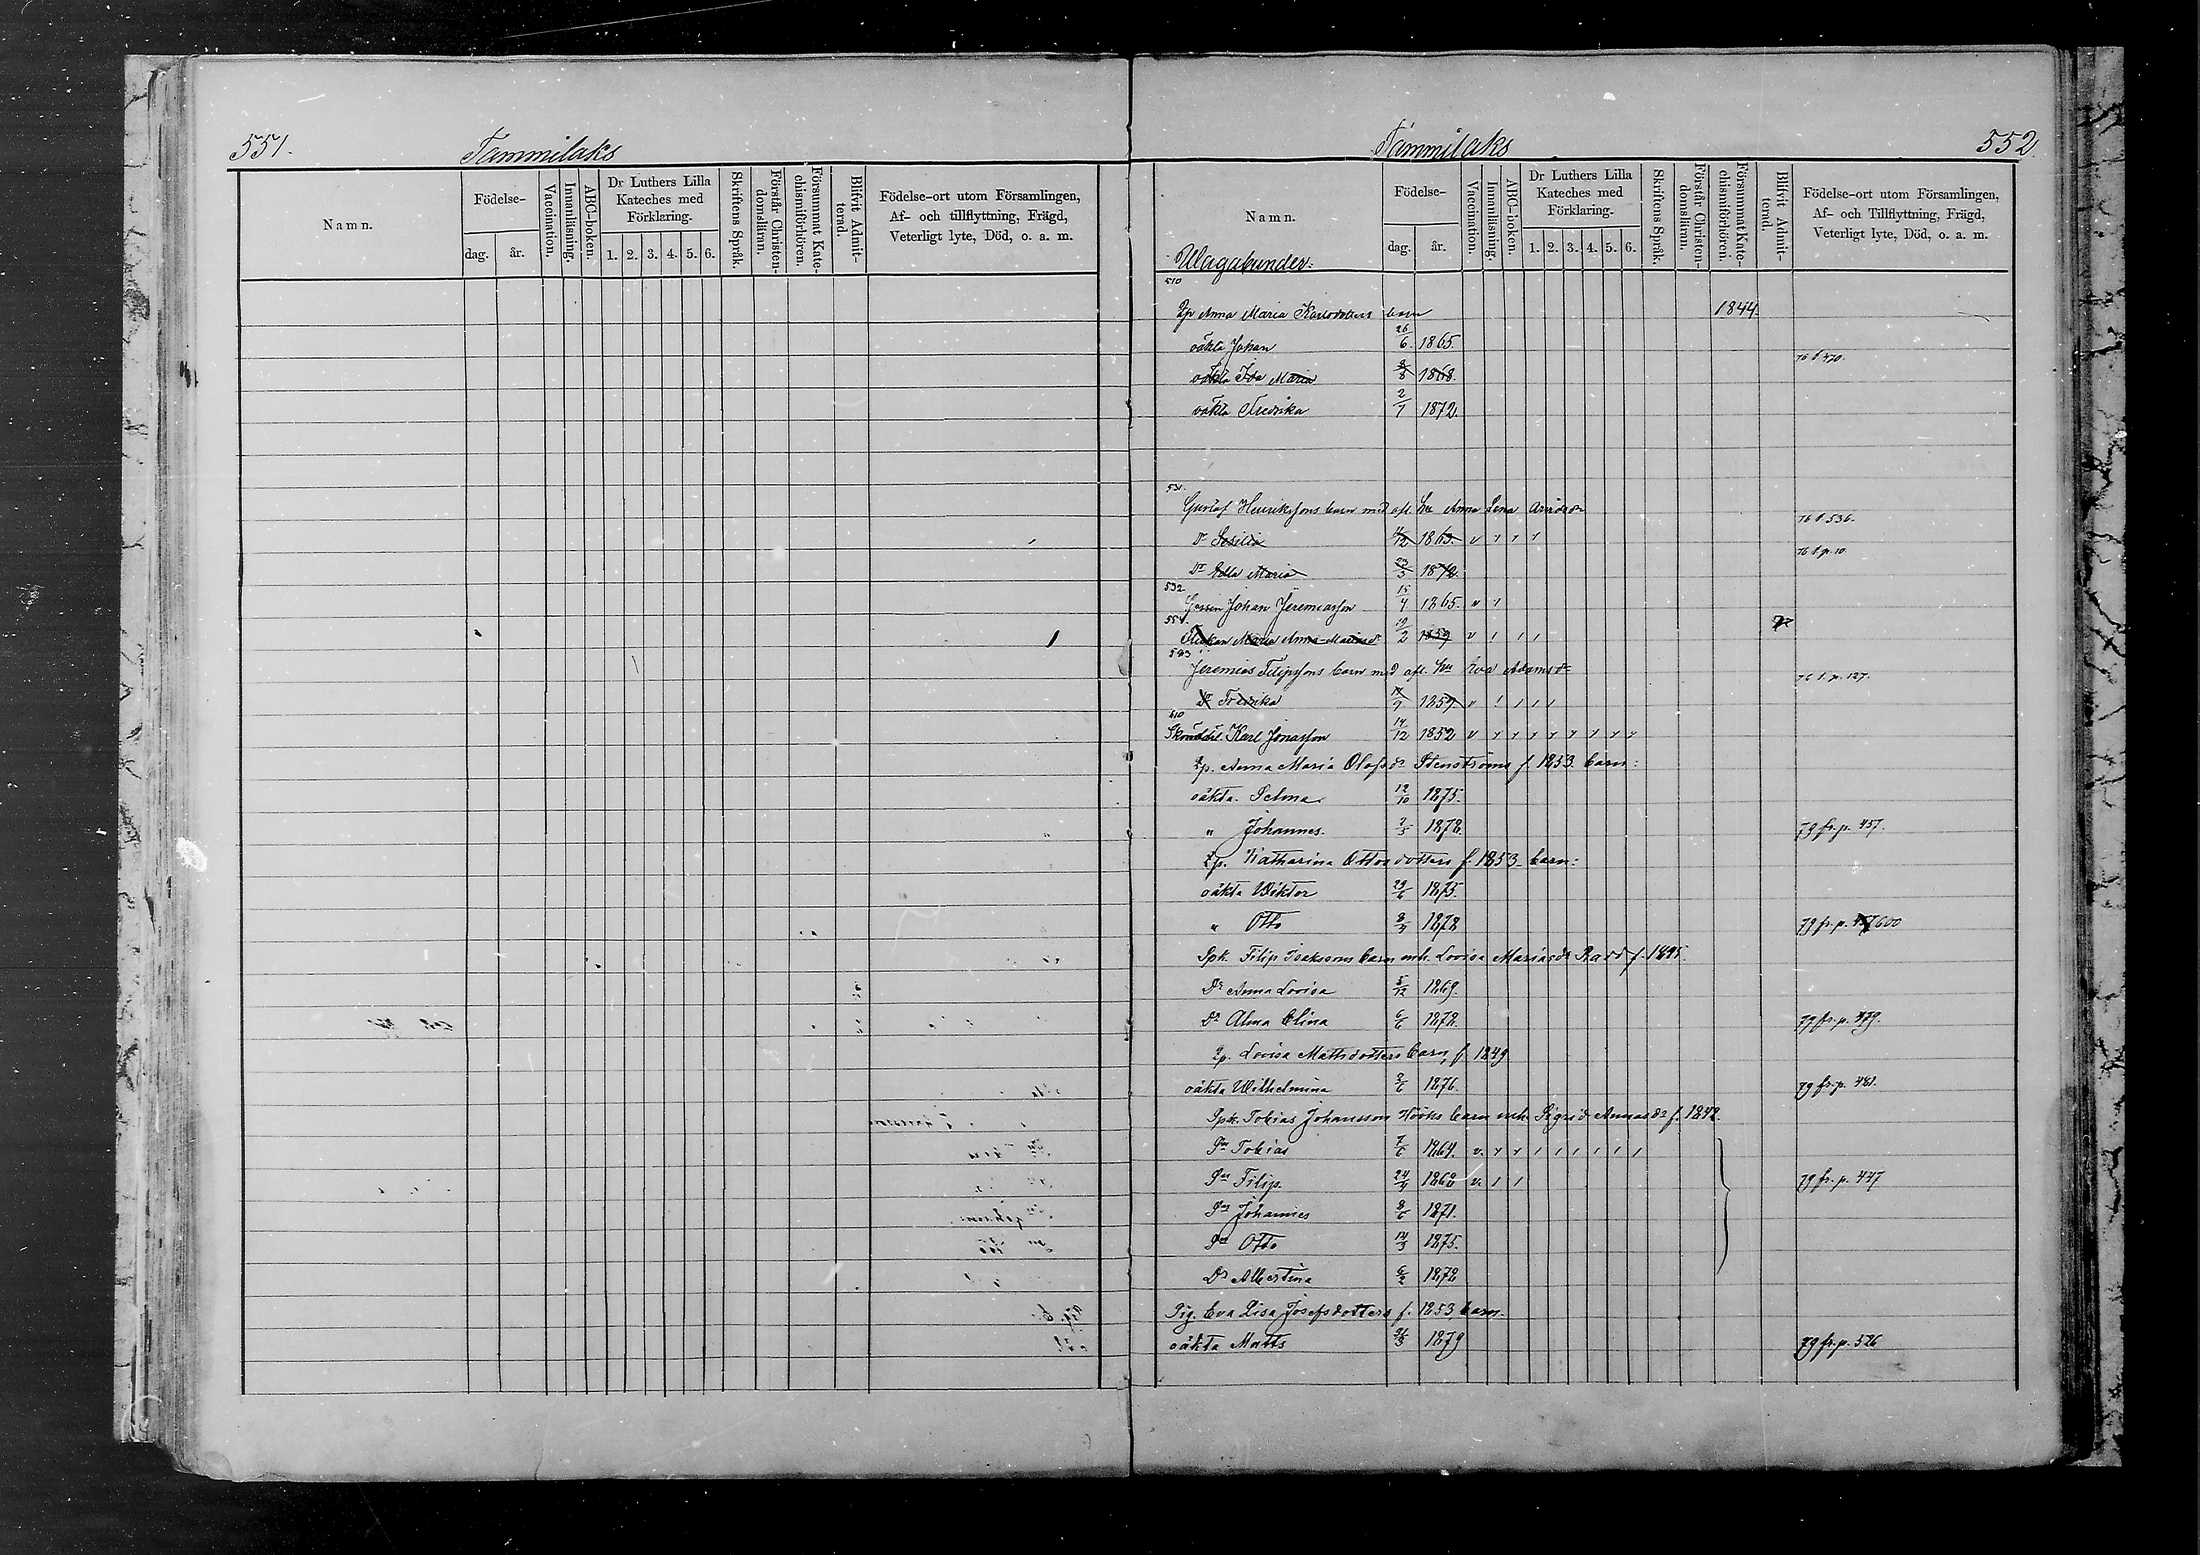 551.
Tammilaks
Namn.
Födelse-
dag. år.
Vaccination.
Innanläsning.
ABC-boken.
Dr Luthers Lilla Kateches med Förklaring.
1. 2. 3. 4. 5. 6.
Skriftens Språk.
Förstår Christendomsläran.
Försummat Katechismiförhören.
Blifvit Admitterad.
Födelse-ort utom Församlingen,
Af- och tillflyttning, Frägd,
Veterligt lyte, Död, o. a. m.
Tammilaks
552.
Namn.
Födelse-
dag. år.
Vaccination.
Innanläsning.
ABC-boken.
Dr Luthers Lilla Kateches med Förklaring.
1. 2. 3. 4. 5. 6.
Skriftens Språk.
Förstår Christendomsläran.
Försummat Katechismiförhören.
Blifvit Admitterad.
Födelse-ort utom Församlingen,
Af- och Tillflyttning, Frägd,
Veterligt lyte, Död, o. a. m.
510
Qp Anna Maria Karlsdotters barn 1844.
oäkta Johan 26/6 1865.
oäkta Ida Maria 1868. 76 t 470.
oäkta Fredrika 2/7 1872.
531.
Gustaf Henrikssons barn med afl. hu Anna Lena
Dr 12 1863. v 76 t 536.
Dr Edla Maria 23/5 1872. 76 t. p. 10.
532
Gossen Johan Jeremiasson 15/4 1865. v
551.
Flickan Maria Anna-Mariasdr 19/2 1859 v
543
Jeremias Filipssons barn med afl. hu Eva Adamsdr
Dr Fredrika 1859. v 76 t. p. 127.
610
Karl Jonasson 14/12 1852 v
Qp. Anna Maria Olofsdr Stenströms f. 1853. barn:
oäkta. Selma. 12/10 1875.
" Johannes. 2/5 1878. 79 fr. p. 457.
Qp. Katharina Ottosdotters f. 1853 barn:
oäkta Viktor 29/6 1875.
" Otto 1878 79 fr. p. 600
Spk. Filip Isakssons barn mh. Lovisa Mariasdr f. 1845.
Dr Anna Lovisa 5/12 1869.
Dr Alma Elina 6/6 1878. 79 fr. p. 479.
Qp. Lovisa Mattsdotters barn, f 1849
oäkta Wilhelmina 2/6 1876. 79 fr. p. 481.
Spk. Tobias Johansson Hööks barn mh. Sigrid Annasdr f. 1842.
Sn Tobias 7/6 1864. v.
Sn Filip. 24/4 1868 v. 79 fr. p. 447
Sn Johannes 8/6 1871.
Sn Otto 14/3 1875.
Dr Albertina 6/2 1878
Pig. Eva Lisa Josefsdotters f. 1853 barn.
oäkta Matts 26/3 1879 79 fr. p. 526